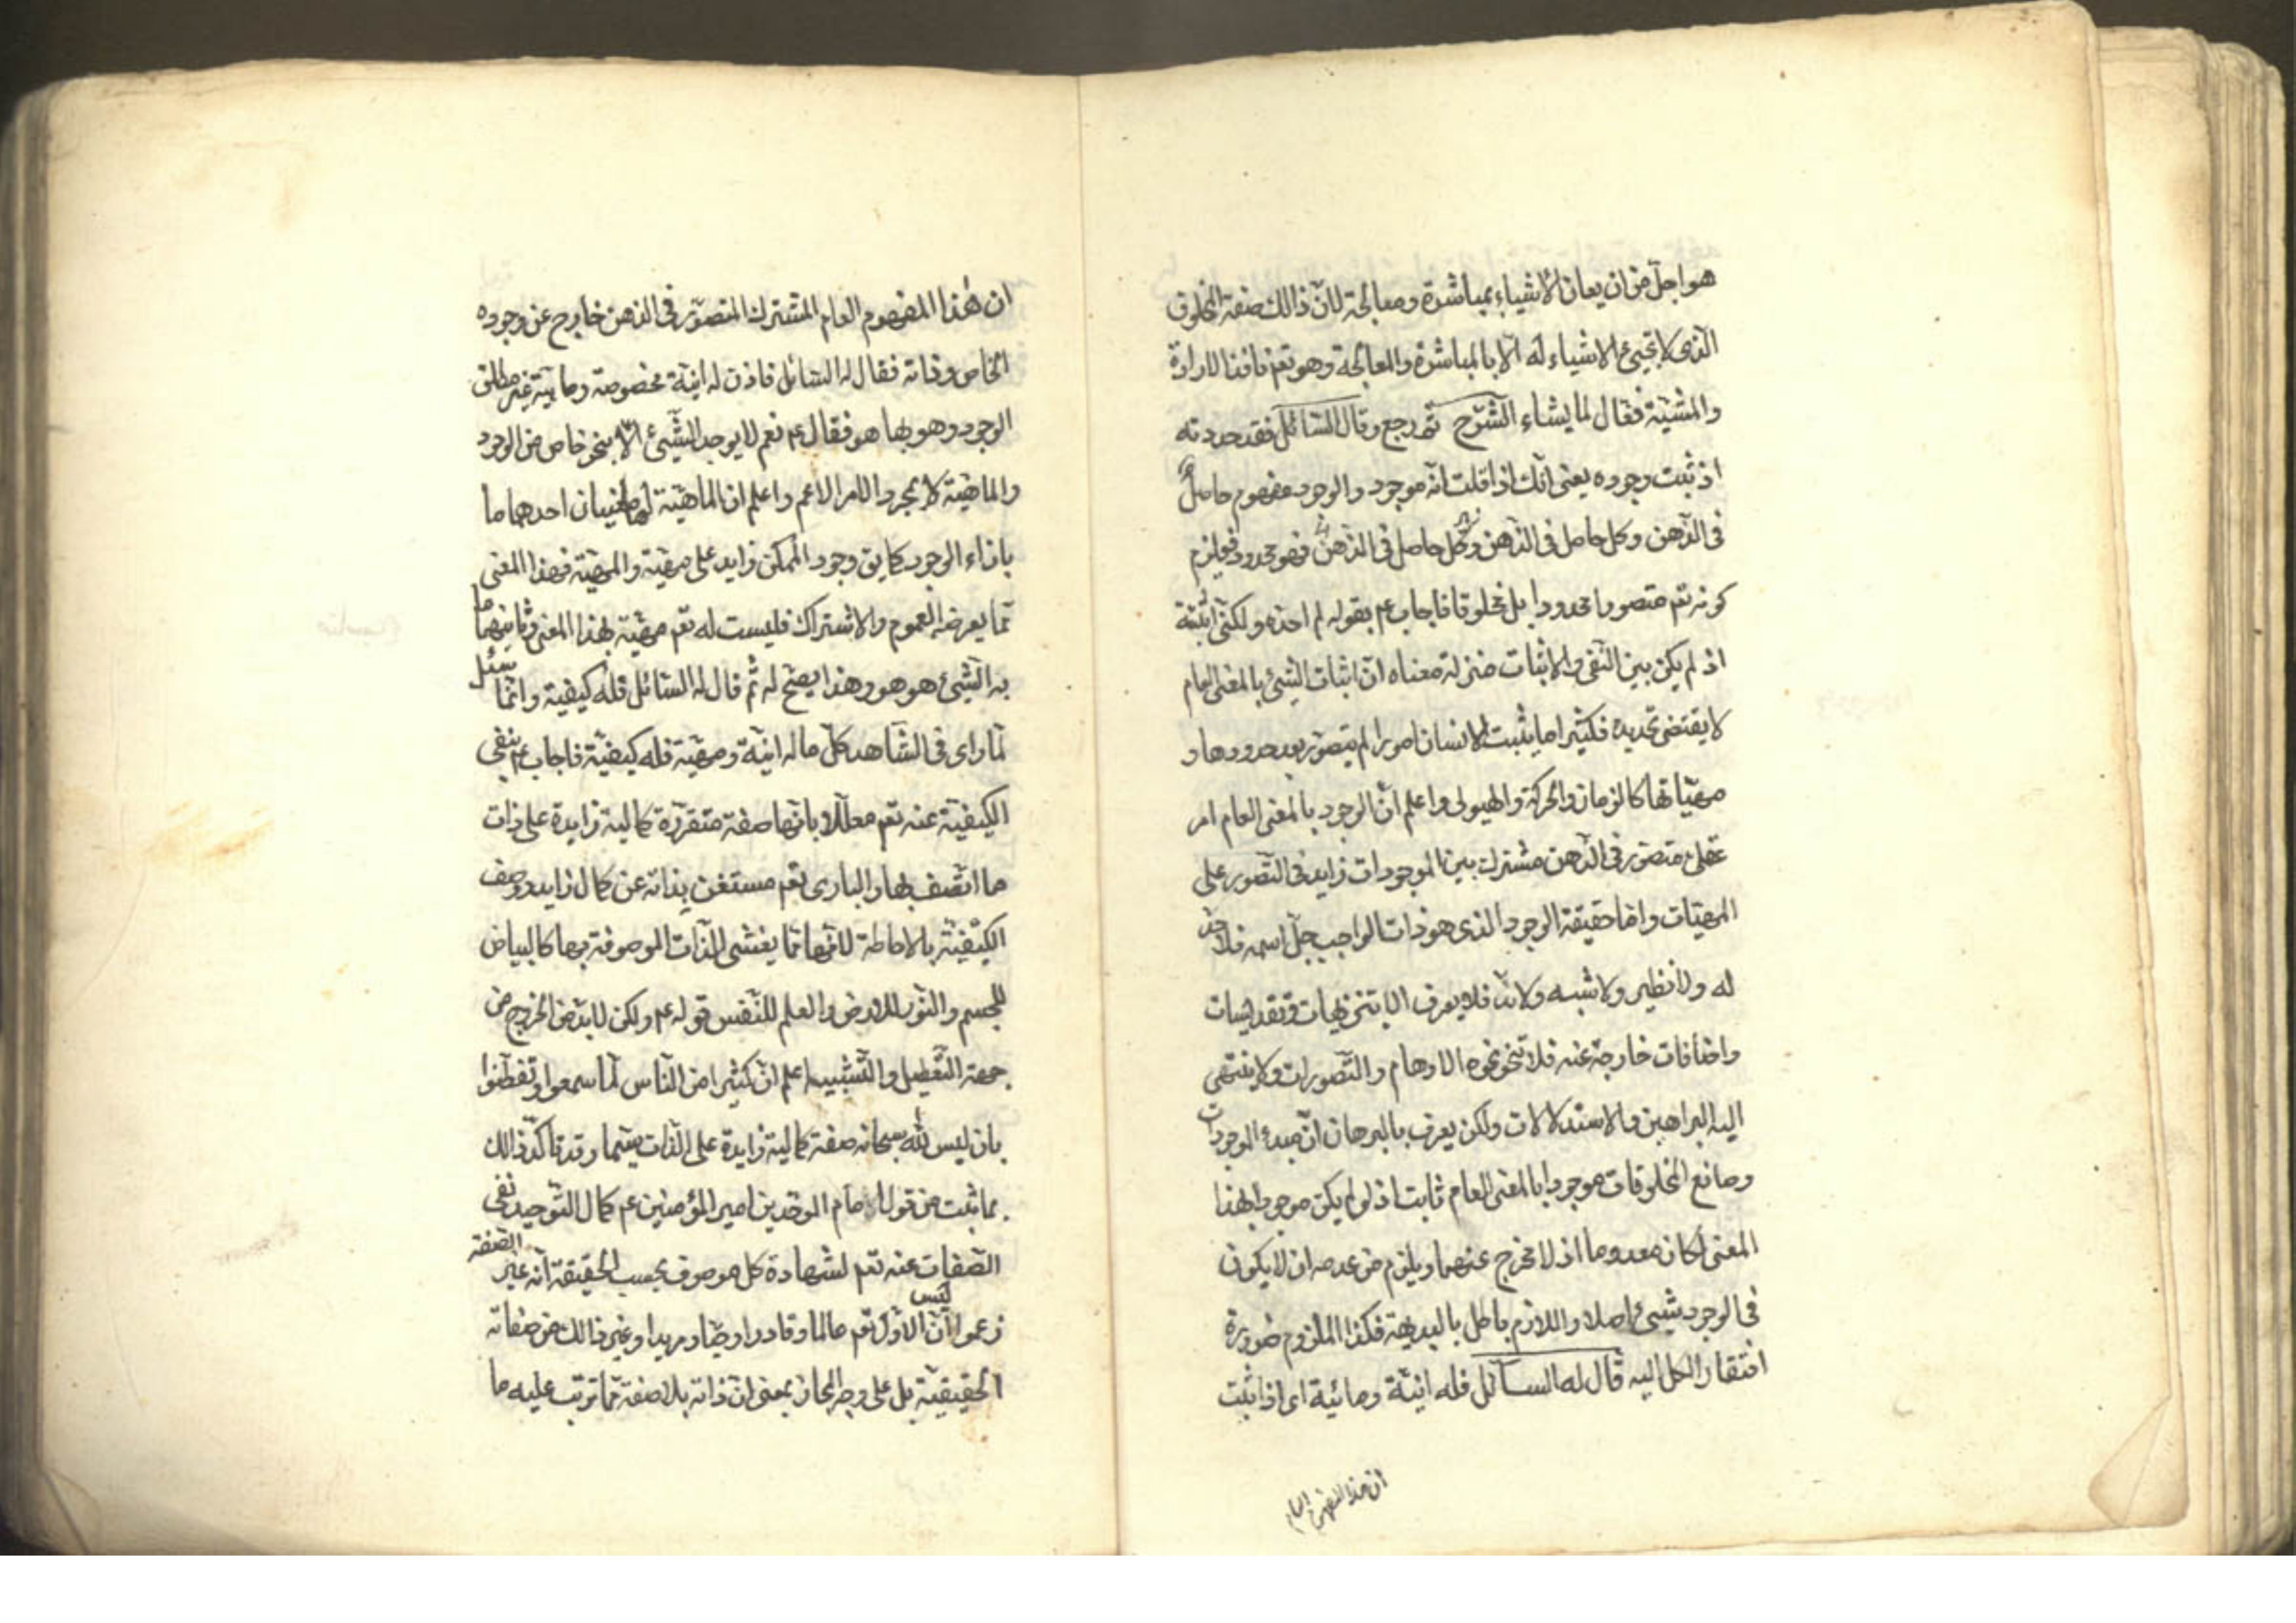 هو اجلّ من ان يعانى الاشياء بمباشرة ومعالجة لانّ ذالك صفة المخلوق
الّذى لا تجيئ الاشياء له الّا بالمباشرة والمعالجة وهو تعم نافذ الارادة
والمشيّة فعّال لما يشاء الشّرح ثم رجع وقال السّائل فقد حددته
اذ ثبت وجوده يعنى انّك اذا قلت انّه موجود والوجود مفهوم حاصل
فى الذّهن وكل حاصل فى الذّهن وكل حاصل فى الذّهن فهو محدود فيلزم
كونه تعم متصورا محدودا بل مخلوقا فاجاب عم بقوله لم احدّه ولكنّى اثبته
اذ لم يكن بين النّفى والاثبات منزلة معناه انّ اثبات الشّئ بالمعنى العام
لا يقتضى تحديده فكثيرا ما يثبت الانسان امورا لم يتصوّر بعد حدودها و
مهيّاتها كالزمان والحركة والهيولى واعلم انّ الوجود بالمعنى العام امر
عقلىّ متصوّر فى الذّهن مشترك بين الموجودات زايد فى التّصور على
المهيّات وامّا حقيقة الوجود الذى هو ذات الواجب جلّ اسمه فلا حدّ
له ولا نظير ولا شبه ولا ندّ فلا يعرف الا بتنزيهات وتقديسات
واضافات خارجة عنه فلا تنحو نحوه الاوهام والتّصورات ولا ينتهى
اليه البراهين والاستدلالات ولكن يعرف بالبرهان انّ مبدء الموجودات
وصانع المخلوقات موجود بالمعنى العام ثابت اذ لو لم يكن موجودا بهذا
المعنى لكان معدوما اذ لا مخرج عنهما ويلزم من عدمه ان لا يكون
فى الوجود شيئ اصلا واللازم باطل بالبديهة فكذا الملزوم ضرورة
افتقار الكل اليه قال له السائل فله انيّة ومائية اى اذا ثبت
ان هذا المفهوم العام
ان هٰذا المفهوم العام المشترك المتصوّر فى الذهن خارج عن وجوده
الخاص وذاته فقال له السّائل فاذن له انيّة مخصوصة وماييّة غير مطلق
الوجود وهو بها هو فقال عم نعم لا يوجد الشّيئ الّا بنحو خاص من الوجود
والماهيّة لا بمجرد الامر الاعم واعلم انّ الماهيّة لها معنيان احدهما ما
بازاء الوجود كما يق وجود الممكن زايد على مهيّته والمهيّة بهذا المعنى
ممّا يعرضه العموم والاشتراك فليست له تعم مهيّة بهذا المعنى وثانيهما ما
به الشّيئ هو هو وهذا يصحّ له ثمّ قال له السّائل فله كيفيّة وانّما سئل
لمّا راى فى الشّاهد كلّ ما له انيّة ومهيّة فله كيفيّة فاجاب عم بنفى
الكيفيّة عنه تعم معلّلا بانّها صفة متقرّرة كمالية زايدة على ذات
ما اتّصف بها والبارى تعم مستغن بذاته عن كمال زايد ووصف
الكيفيّة بالاحاطة لانّها ممّا يغشى الذّات الموصوفة بها كالبياض
للجسم والنّور للارض والعلم للنّفس قوله عم ولكن لا بدّ من الخروج من
جهة التّعطيل والتّشبيه اعلم انّ كثيرا من النّاس لمّا سمعوا وتفطّنوا
بان ليس لله سبحانه صفة كمالية زايدة على الذّات سيّما وقد تاكّد ذالك
بما ثبت من قول امام الموحّدين امير المؤمنين عم كمال التّوحيد نفى
الصّفات عنه تعم لشهادة كل موصوف بحسب الحقيقة انّه غير الصّفة
زعموا انّ الاوّل تعم ليس عالما وقادرا وحيّا ومريدا وغير ذالك من صفاته
الحقيقيّة بل على وجه المجاز بمعنى انّ ذاته بلا صفة ممّا ترتب عليه ما